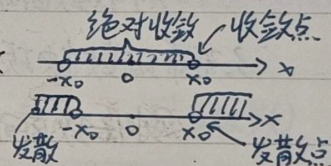 绝对收敛 收敛点
-x₀ 0 x₀ x
-x₀ 0 x₀ x
发散 发散点